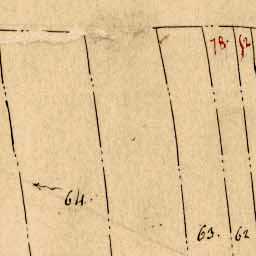 78. 62
64.
63. 62